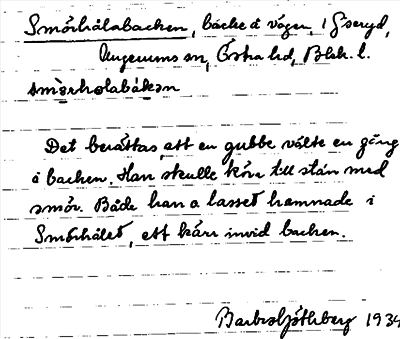 Smörhålabacken, backe å vägen, i Gseryd,
Ungerums sn, Östra hd, Blek. l.
smörholabakən
Det berättas att en gubbe välte en gång
i backen. Han skulle köra till stán med
smör. Både han o lasset hamnade i
Smörhålet, ett kärr invid backen.
Barbro Götherberg 1934